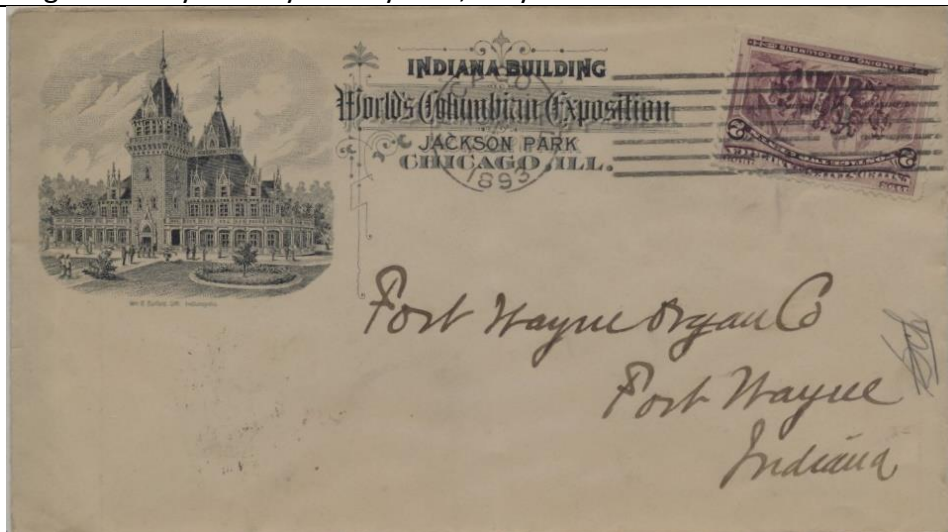 INDIANA BUILDING
World's Columbian Exposition
JACKSON PARK
CHICAGO, ILL.
1893
2 2
Fort Wayne Organ Co
Fort Wayne
Indiana